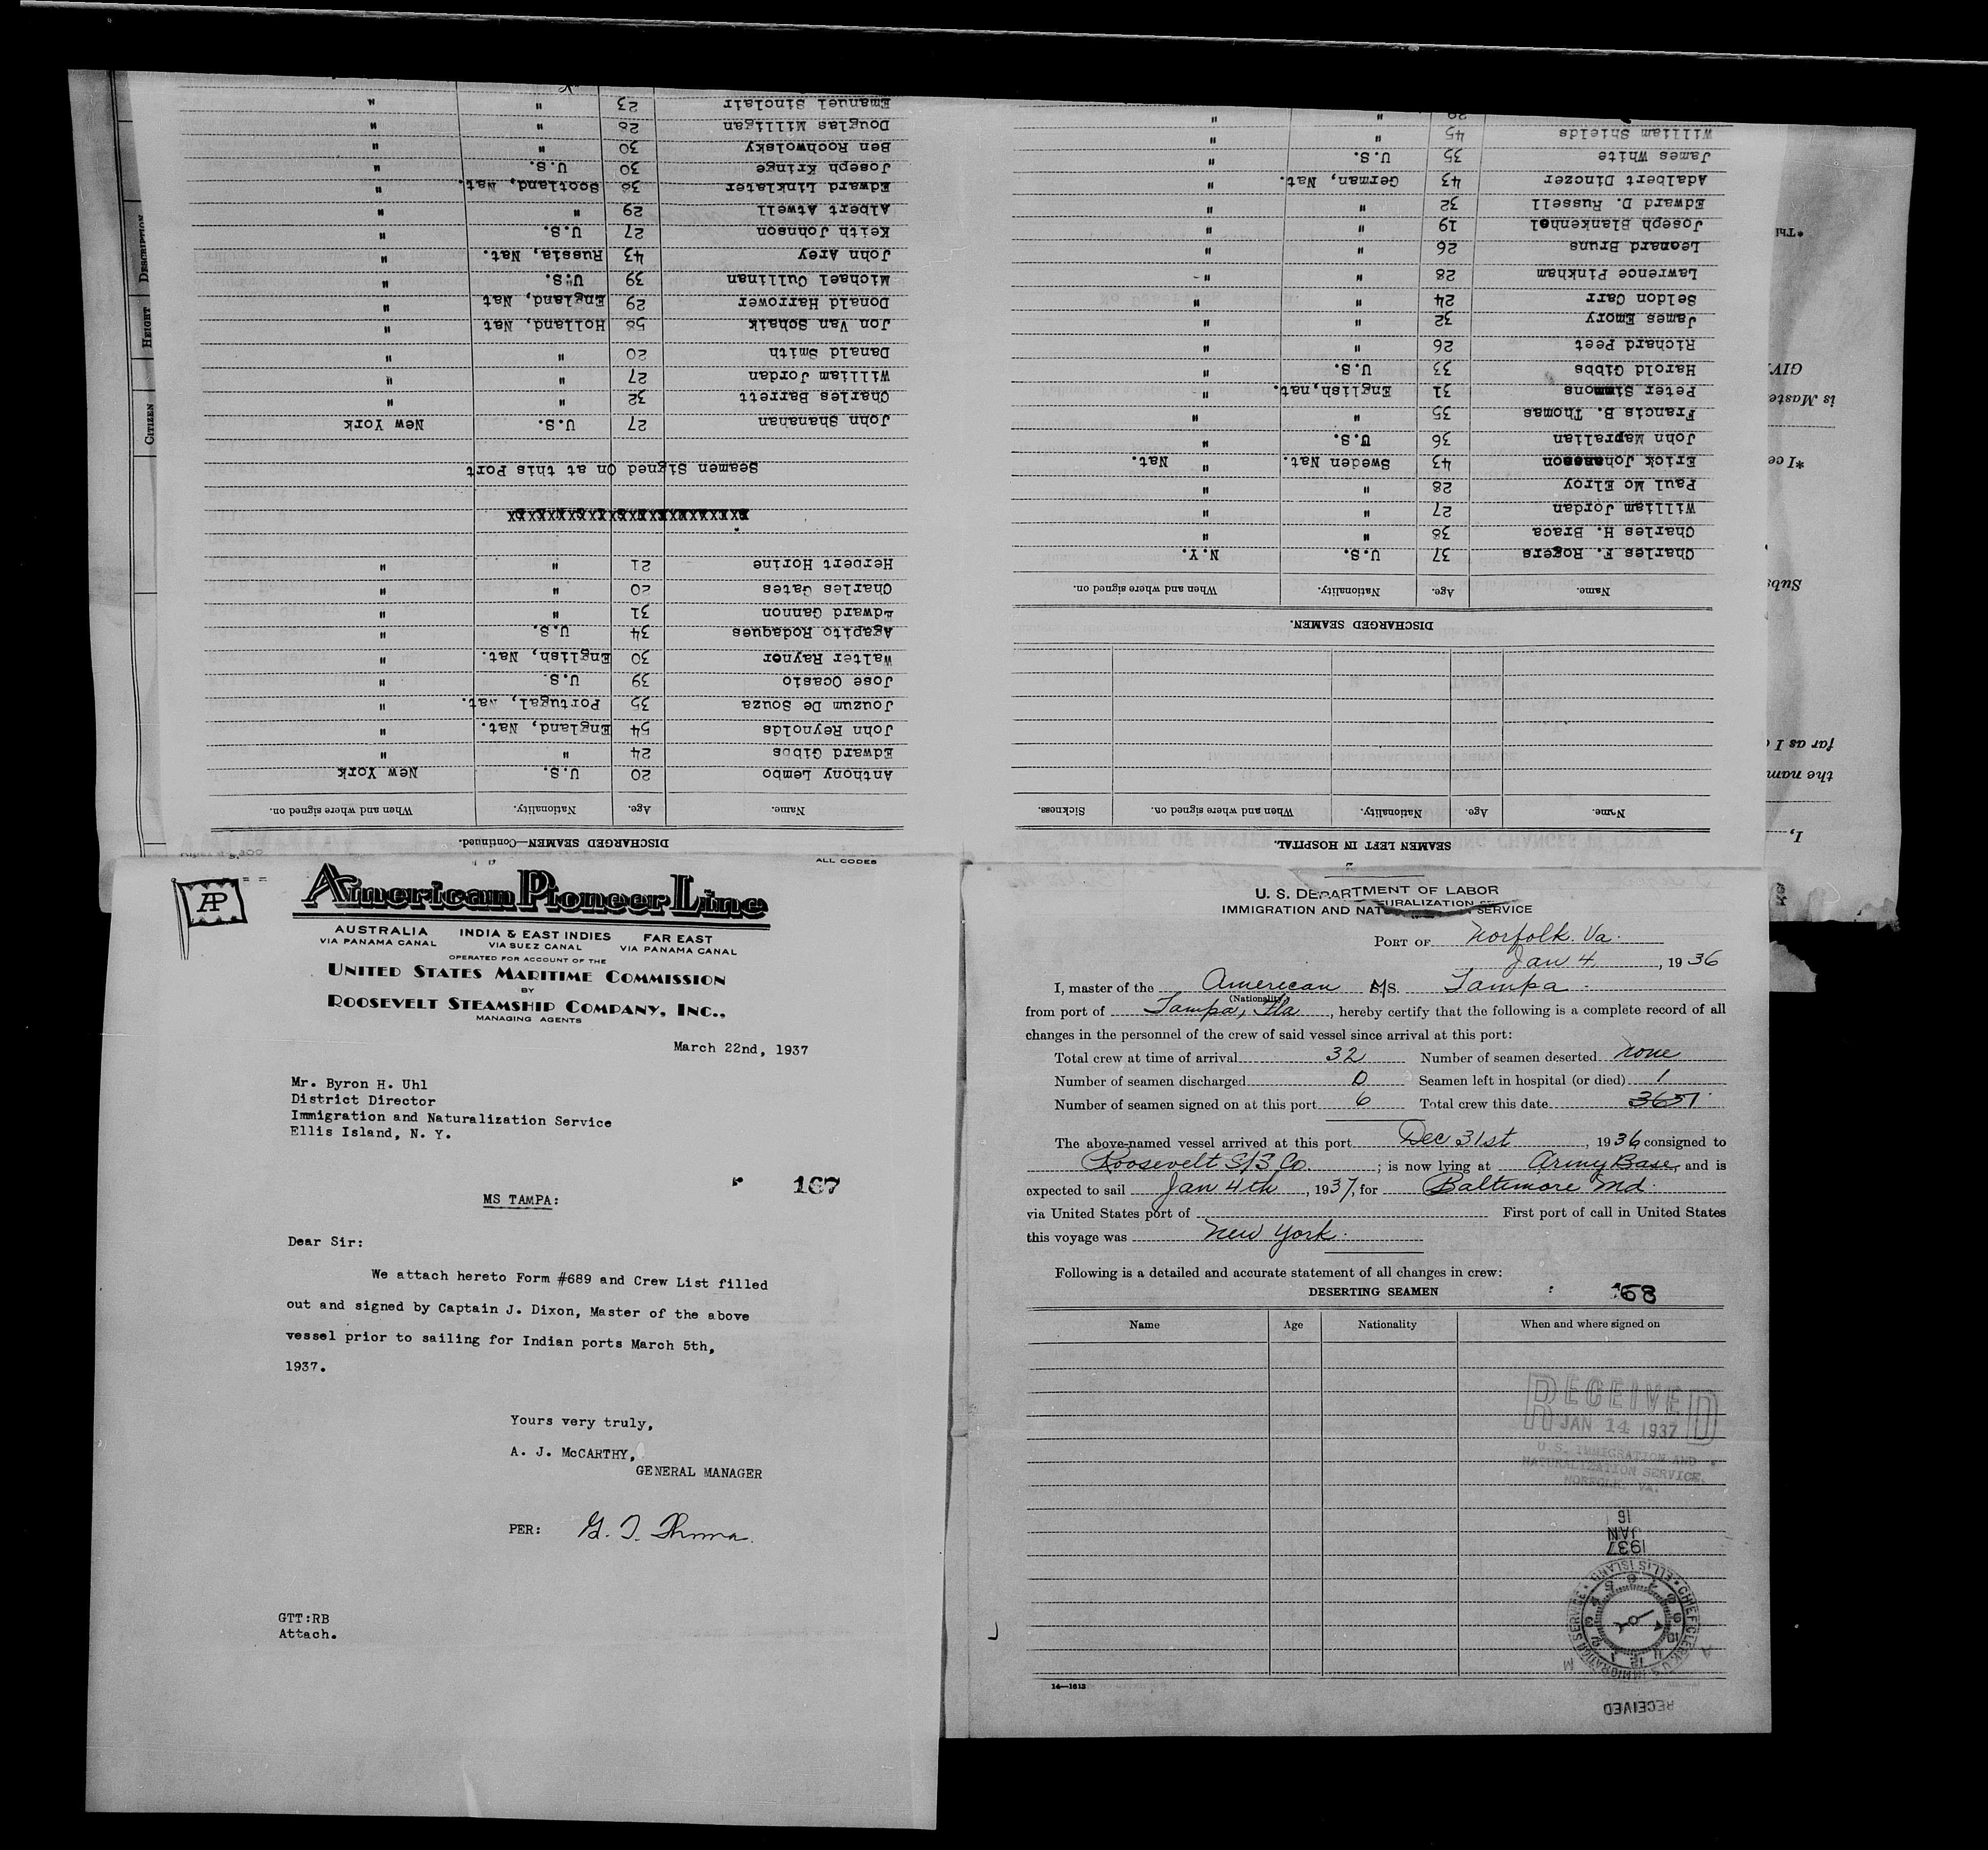 American Pioneer Line
ALL CODES
AP
AUSTRALIA INDIA & EAST INDIES FAR EAST
VIA PANAMA CANAL VIA SUEZ CANAL VIA PANAMA CANAL
OPERATED FOR ACCOUNT OF THE
UNITED STATES MARITIME COMMISSION
BY
ROOSEVELT STEAMSHIP COMPANY, INC.,
MANAGING AGENTS
March 22nd, 1937
Mr. Byron H. Uhl
District Director
Immigration and Naturalization Service
Ellis Island, N. Y.
167
MS TAMPA:
Dear Sir:
We attach hereto Form #689 and Crew List filled
out and signed by Captain J. Dixon, Master of the above
vessel prior to sailing for Indian ports March 5th,
1937.
Yours very truly,
A. J. McCARTHY,
GENERAL MANAGER
PER:
GTT:RB
Attach.
U. S. DEPARTMENT OF LABOR
IMMIGRATION AND NATURALIZATION SERVICE
PORT OF Norfolk. Va.
Jan 4, 1936
I, master of the American M/S. Tampa
(Nationality)
from port of Tampa, Fla, hereby certify that the following is a complete record of all
changes in the personnel of the crew of said vessel since arrival at this port:
Total crew at time of arrival 32 Number of seamen deserted none
Number of seamen discharged 0 Seamen left in hospital (or died) 1
Number of seamen signed on at this port 6 Total crew this date
The above-named vessel arrived at this port Dec 31st, 1936 consigned to
Roosevelt S/S Co.; is now lying at Army Base, and is
expected to sail Jan 4th, 1937, for Baltimore Md.
via United States port of First port of call in United States
this voyage was New York.
Following is a detailed and accurate statement of all changes in crew:
DESERTING SEAMEN
168
Name Age Nationality When and where signed on
RECEIVED
JAN 14 1937
U.S. IMMIGRATION AND
NATURALIZATION SERVICE,
NORFOLK, VA.
1937
JAN
16
CHIEF CLERK U.S. IMMIGRATION SERVICE ELLIS ISLAND
RECEIVED
14—1613
SEAMEN LEFT IN HOSPITAL.
Name. Age. Nationality. When and where signed on. Sickness.
DISCHARGED SEAMEN.
Name. Age. Nationality. When and where signed on.
Charles F. Rogers 37 U.S. N.Y.
Charles H. Braca 38 " "
William Jordan 27 " "
Paul Mc Elroy 28 " "
Erick Johansson 43 Sweden Nat. " Nat.
John Mapralian 36 U.S. "
Francis B. Thomas 35 " "
Peter Simmons 31 English,nat. "
Harold Gibbs 33 U.S. "
Richard Peet 26 " "
James Emory 32 " "
Seldon Carr 24 " "
Lawrence Pinkham 28 " "
Leonard Bruns 26 " "
Joseph Blankenhel 19 " "
Edward D. Russell 32 " "
Adalbert Dinczer 43 German, Nat. "
James White 35 U.S. "
William Shields 45 " "
DISCHARGED SEAMEN—Continued.
Name. Age. Nationality. When and where signed on.
Anthony Lembo 20 U.S. New York
Edward Gibbs 24 " "
John Reynolds 54 England, Nat. "
Jouzum De Souza 35 Portugal, Nat. "
Jose Ocasio 39 U.S. "
Walter Raynor 30 English, Nat. "
Agapito Rodaques 34 U.S. "
Edward Gannon 31 " "
Charles Gates 20 " "
Herbert Horine 21 " "
Seamen Signed On at this Port
John Shanahan 27 U.S. New York
Charles Barrett 32 " "
William Jordan 27 " "
Danald Smith 20 " "
Jon Van Schaik 58 Holland, Nat "
Donald Harrower 29 England, Nat "
Michael Cullinan 39 U.S. "
John Arey 43 Russia, Nat. "
Keith Johnson 27 U.S. "
Albert Atwell 29 " "
Edward Linklater 38 Scotland, Nat. "
Joseph Kringe 30 U.S. "
Ben Rochwolsky 30 " "
Douglas Milligan 28 " "
Emanuel Sinclair 23 " "
CITIZEN
HEIGHT
DESCRIPTION
I,
the nam
far as I
Subs
*I ce
is Maste
GIV
*Thi